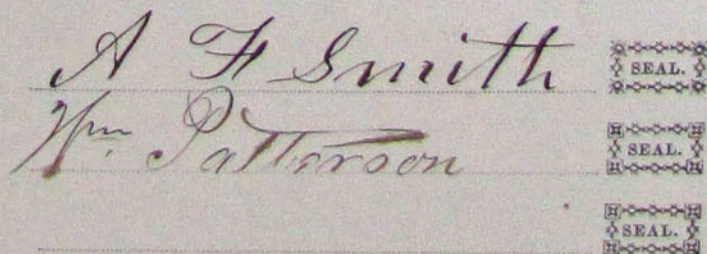 A F Smith SEAL.
Wm. Patterson SEAL.
SEAL.